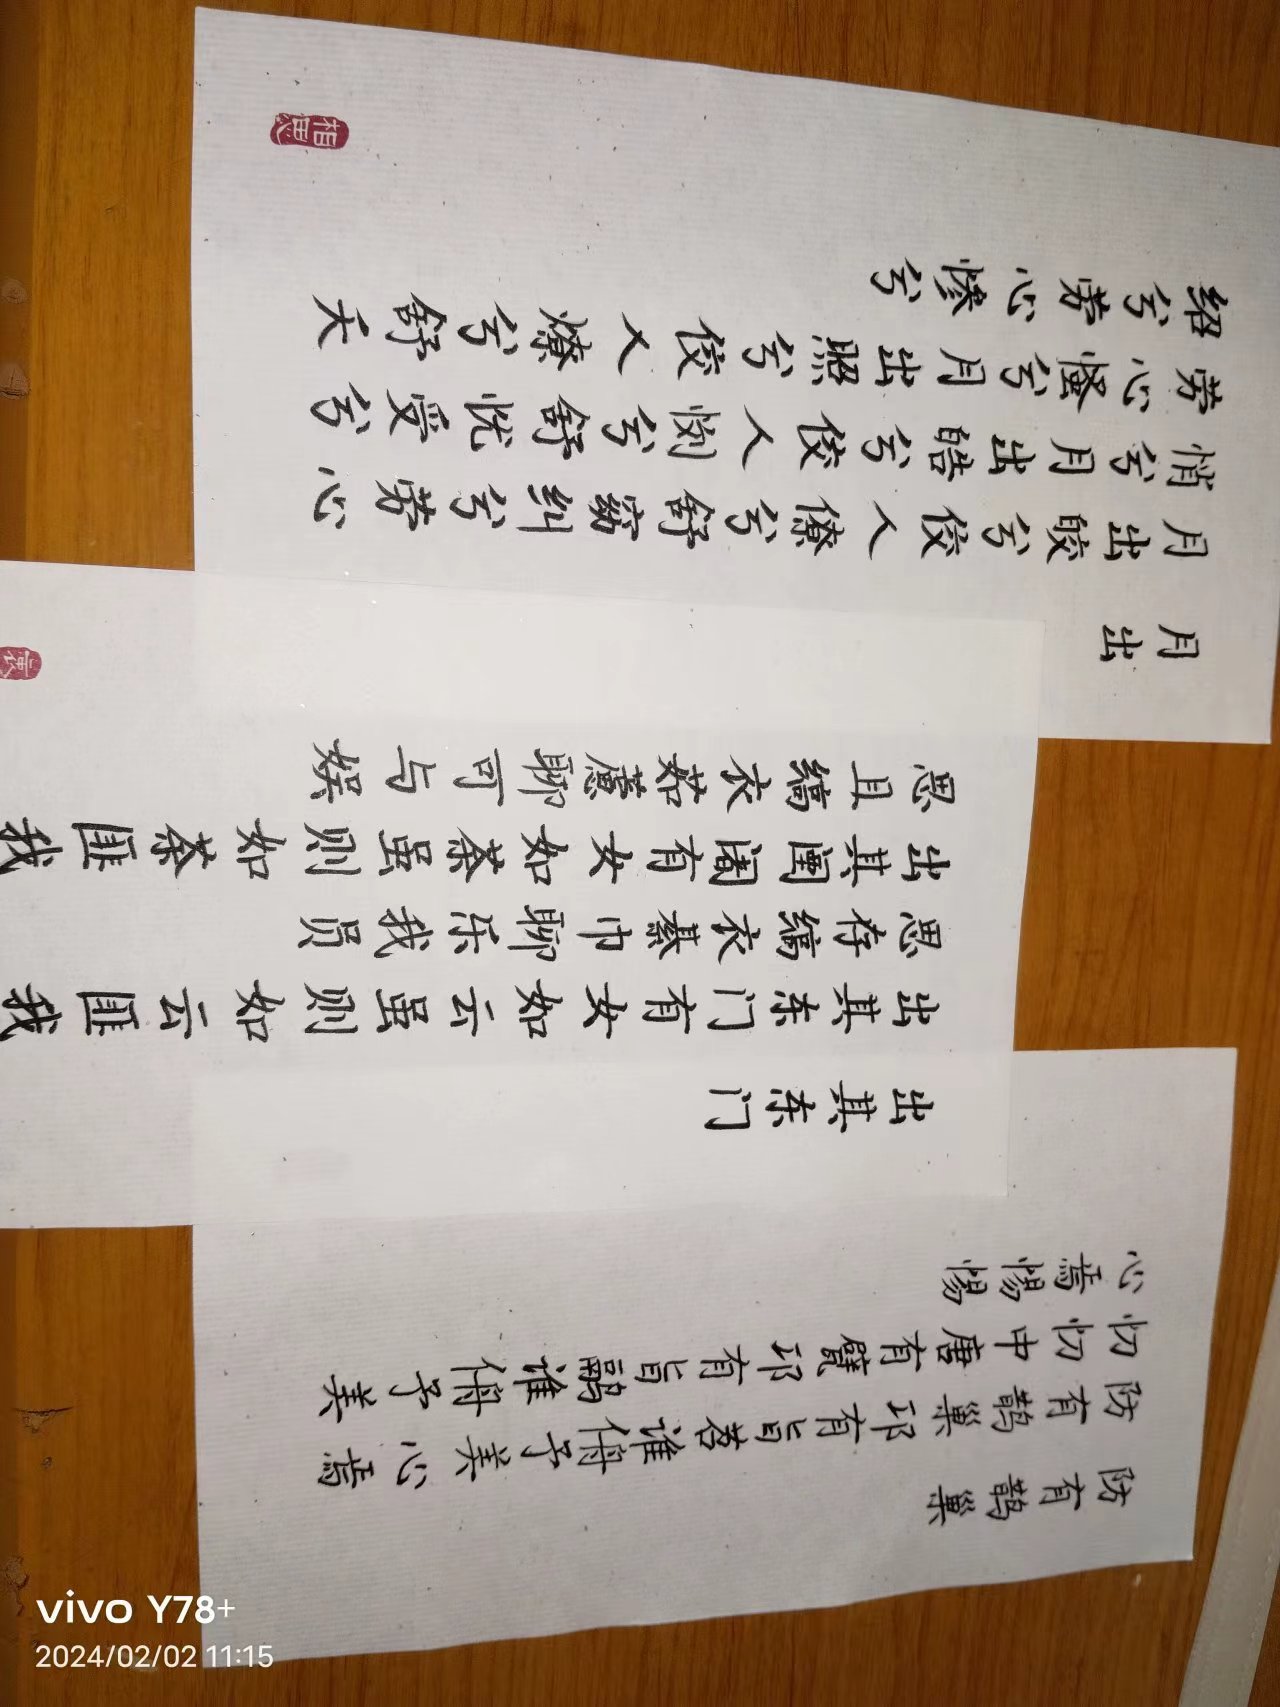 防有鹊巢
防有鹊巢邛有旨苕谁侜予美心焉
忉忉中唐有甓邛有旨鹝谁侜予美
心焉惕惕
出其东门
出其东门有女如云虽则如云匪我
思存缟衣綦巾聊乐我员
出其闉阇有女如荼虽则如荼匪我
思且缟衣茹藘聊可与娱
月出
月出皎兮佼人僚兮舒窈纠兮劳心
悄兮月出皓兮佼人懰兮舒忧受兮
劳心慅兮月出照兮佼人燎兮舒天
绍兮劳心惨兮
相思
vivo Y78+
2024/02/02 11:15